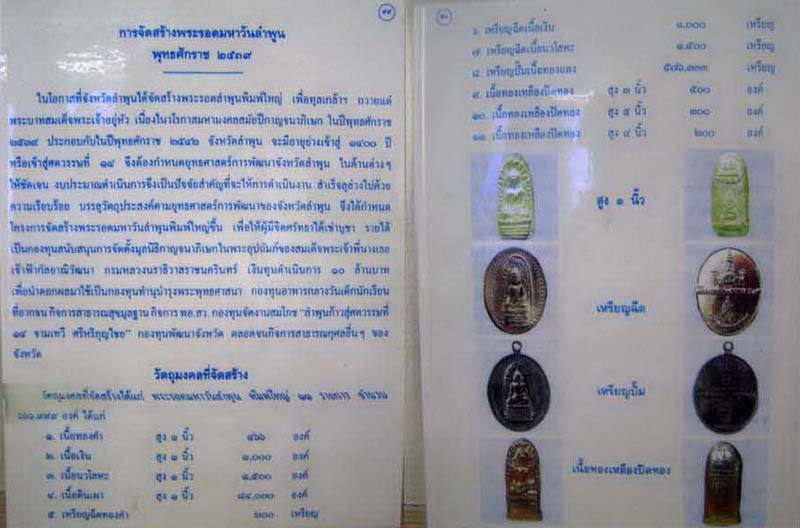 ๑๙
การจัดสร้างพระรอดมหาวันลำพูน
พุทธศักราช ๒๕๓๙
ในโอกาสที่จังหวัดลำพูนได้จัดสร้างพระรอดลำพูนพิมพ์ใหญ่ เพื่อทูลเกล้าฯ ถวายแด่
พระบาทสมเด็จพระเจ้าอยู่หัว เนื่องในวโรกาสมหามงคลสมัยปีกาญจนาภิเษก ในปีพุทธศักราช
๒๕๓๙ ประกอบกับในปีพุทธศักราช ๒๕๔๒ จังหวัดลำพูน จะมีอายุย่างเข้าสู่ ๑๔๐๐ ปี
หรือเข้าสู่ศตวรรษที่ ๑๔ จึงต้องกำหนดยุทธศาสตร์การพัฒนาจังหวัดลำพูน ในด้านต่างๆ
ให้ชัดเจน งบประมาณดำเนินการจึงเป็นปัจจัยสำคัญที่จะให้การดำเนินงาน สำเร็จลุล่วงไปด้วย
ความเรียบร้อย บรรลุวัตถุประสงค์ตามยุทธศาสตร์การพัฒนาของจังหวัดลำพูน จึงได้กำหนด
โครงการจัดสร้างพระรอดมหาวันลำพูนพิมพ์ใหญ่ขึ้น เพื่อให้ผู้มีจิตศรัทธาได้เช่าบูชา รายได้
เป็นกองทุนสนับสนุนการจัดตั้งมูลนิธิกาญจนาภิเษกในพระอุปถัมภ์ของสมเด็จพระเจ้าพี่นางเธอ
เจ้าฟ้ากัลยาณิวัฒนา กรมหลวงนราธิวาสราชนครินทร์ เงินทุนดำเนินการ ๑๐ ล้านบาท
เพื่อนำดอกผลมาใช้เป็นกองทุนทำนุบำรุงพระพุทธศาสนา กองทุนอาหารกลางวันเด็กนักเรียน
ที่ยากจน กิจการสาธารณสุขมูลฐาน กิจการ พอ.สว. กองทุนจัดงานสมโภช "ลำพูนก้าวสู่ศตวรรษที่
๑๔ จามเทวี ศรีหริภุญไชย" กองทุนพัฒนาจังหวัด ตลอดจนกิจการสาธารณกุศลอื่นๆ ของ
จังหวัด
วัตถุมงคลที่จัดสร้าง
วัตถุมงคลที่จัดสร้างได้แก่ พระรอดมหาวันลำพูน พิมพ์ใหญ่ ๑๑ รายการ จำนวน
องค์ ได้แก่
๑. เนื้อทองคำ สูง ๑ นิ้ว ๔๖๖ องค์
๒. เนื้อเงิน สูง ๑ นิ้ว ๑,๐๐๐ องค์
๓. เนื้อนวโลหะ สูง ๑ นิ้ว ๑,๕๐๐ องค์
๔. เนื้อดินเผา สูง ๑ นิ้ว ๘๔,๐๐๐ องค์
๕. เหรียญฉีดทองคำ ๒๐๐ เหรียญ
๒๐
๖. เหรียญฉีดเนื้อเงิน ๑,๐๐๐ เหรียญ
๗. เหรียญฉีดเนื้อนวโลหะ ๑,๕๐๐ เหรียญ
๘. เหรียญปั๊มเนื้อทองแดง ๕๗๖,๓๓๓ เหรียญ
๙. เนื้อทองเหลืองปิดทอง สูง ๓ นิ้ว ๕๐๐ องค์
๑๐. เนื้อทองเหลืองปิดทอง สูง ๕ นิ้ว ๓๐๐ องค์
๑๑. เนื้อทองเหลืองปิดทอง สูง ๙ นิ้ว ๒๐๐ องค์
สูง ๑ นิ้ว
เหรียญฉีด
เหรียญปั๊ม
เนื้อทองเหลืองปิดทอง